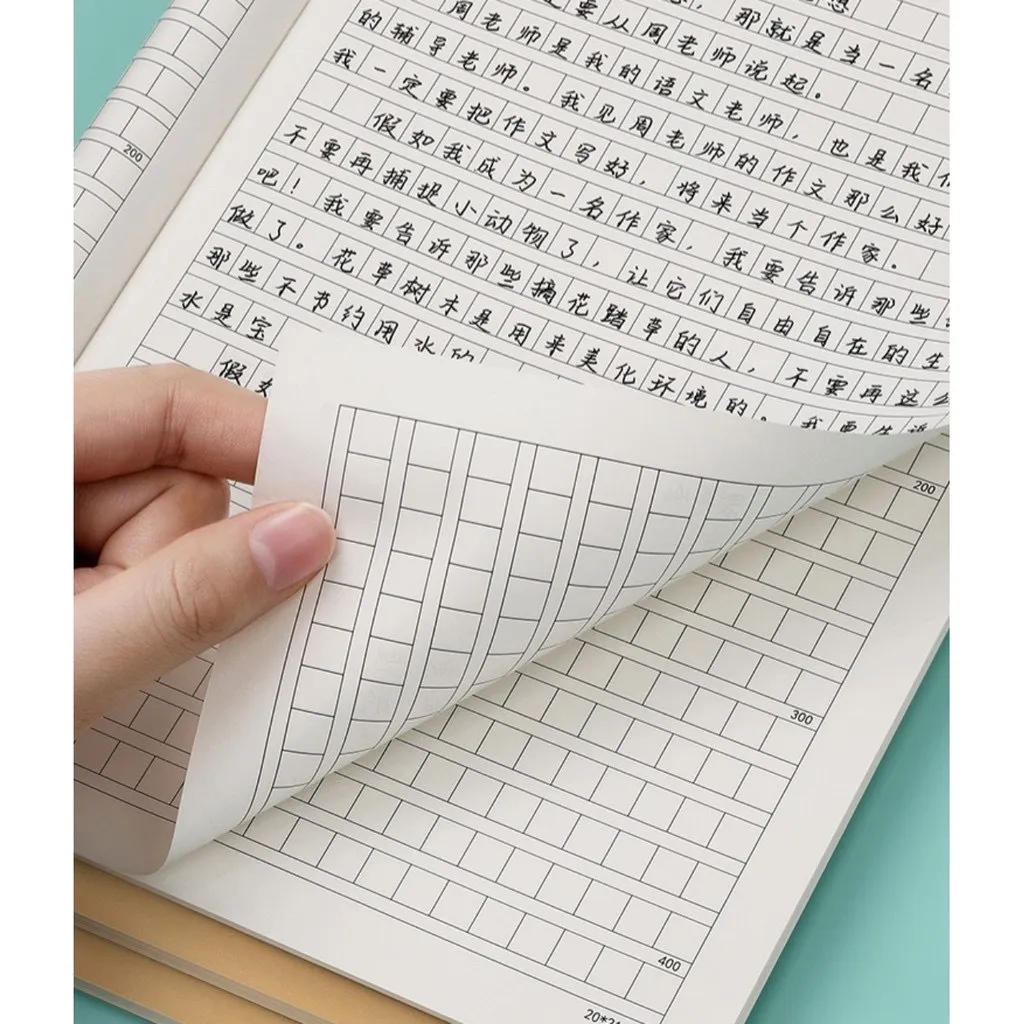 想
那就是当一名
是要从周老师说起。
周老师是我的语文老师，也是我们
的辅导老师。我见周老师的作文那么好
我一定要把作文写好，将来当个作家。
假如我成为一名作家，我要告诉那些
不要再捕捉小动物了，让它们自由自在的生
吧！我要告诉那些摘花踏草的人，不要再这么
做了。花草树木是用来美化环境的。我要告诉
那些不节约用水的
水是宝
假如
200
200
300
400